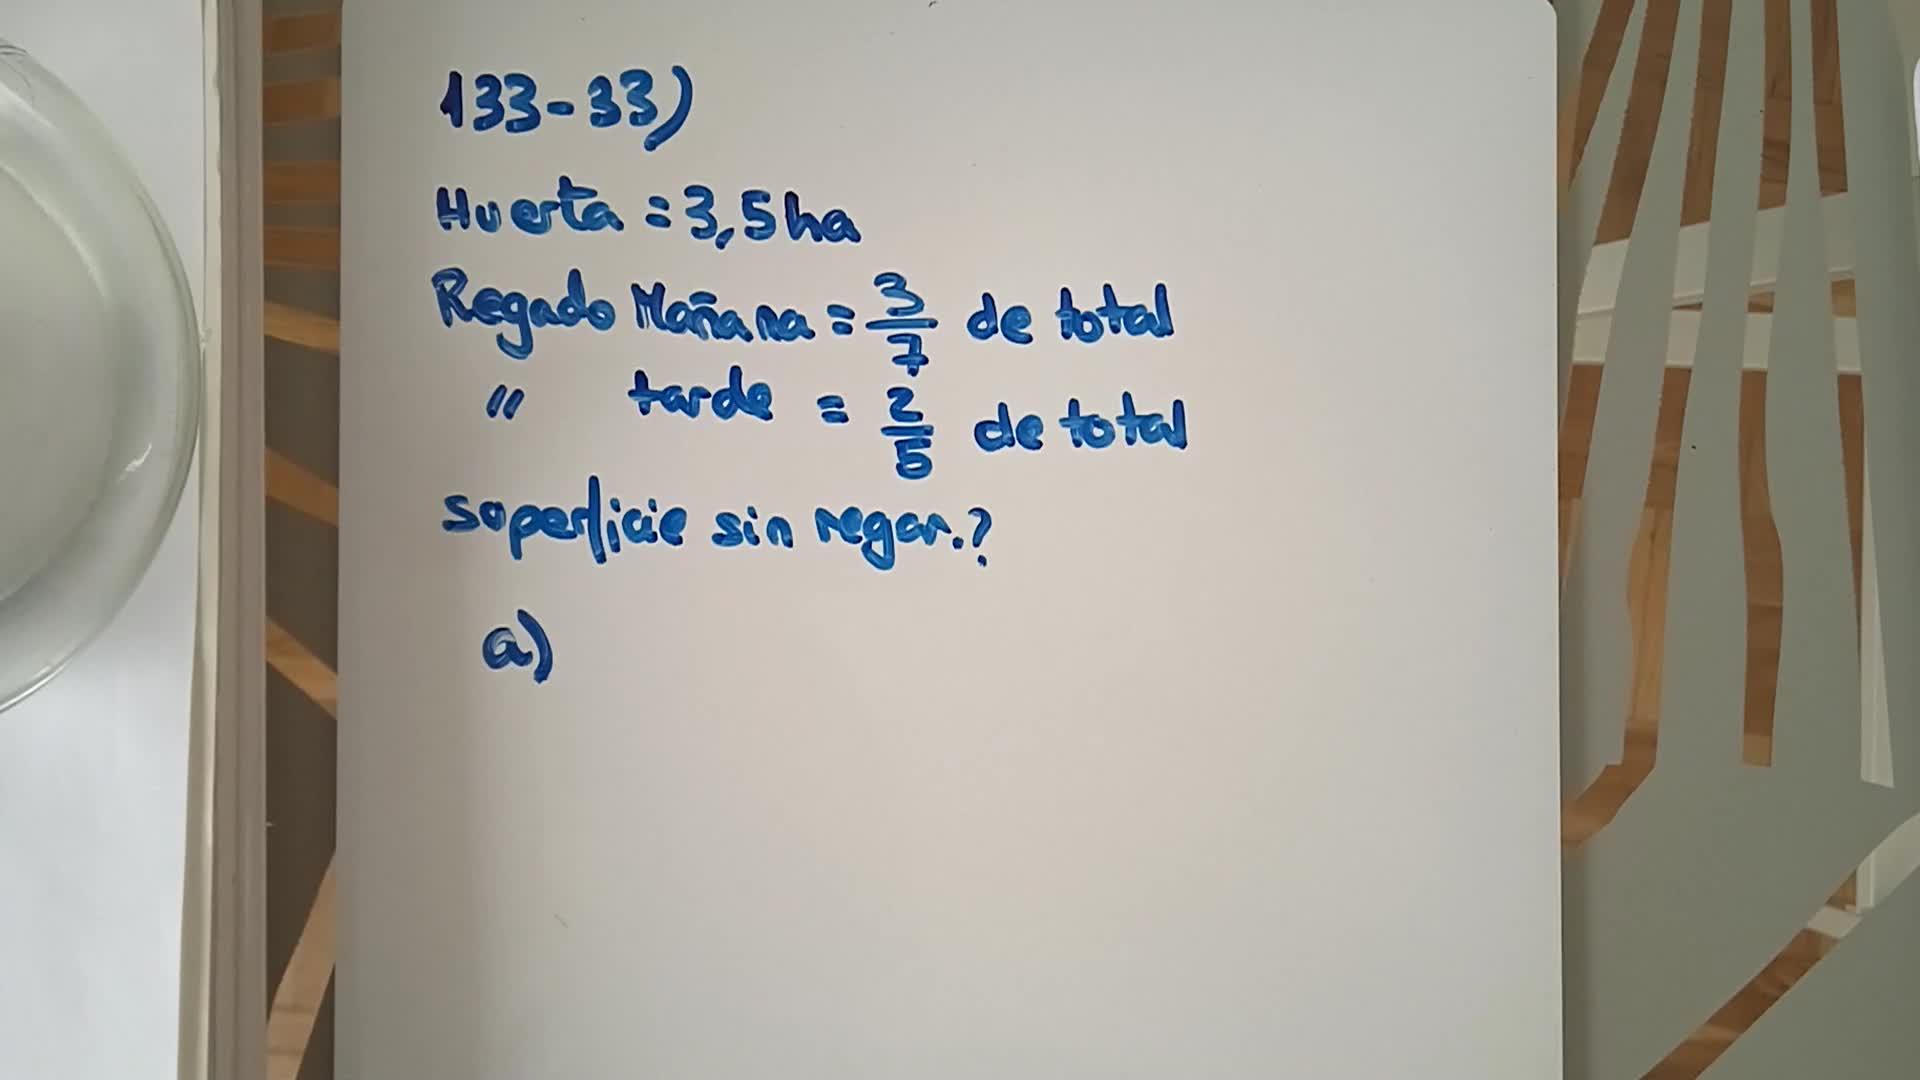 133-33)
Huerta = 3,5 ha
Regado Mañana = 3/7 de total
" tarde = 2/5 de total
superficie sin regar.?
a)